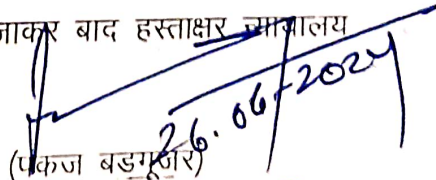 जाकर बाद हस्ताक्षर न्यायालय
26.06.2024
(पंकज बडगूजर)